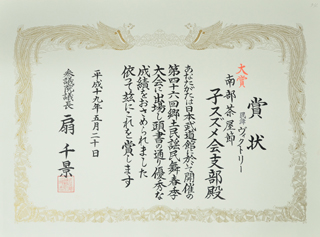 賞状
大賞
南部茶屋節
民謡ヴィクトリー
子スズメ会支部殿
あなたがたは日本武道館に於て開催の
第四十六回郷土民謡民舞春季
大会に出場し頭書の通り優秀な
成績をおさめられました
依って茲にこれを賞します
平成十九年五月二十日
参議院議長
扇千景